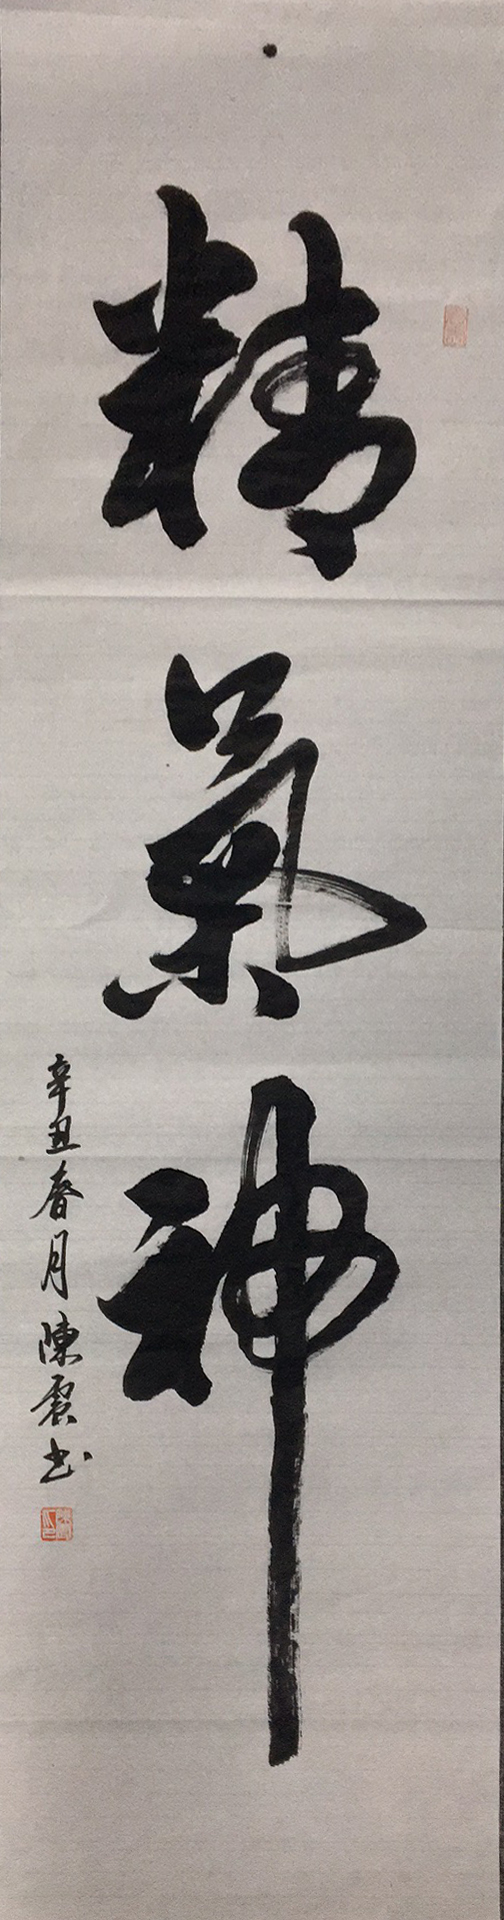 精氣神
辛丑春月陳震书